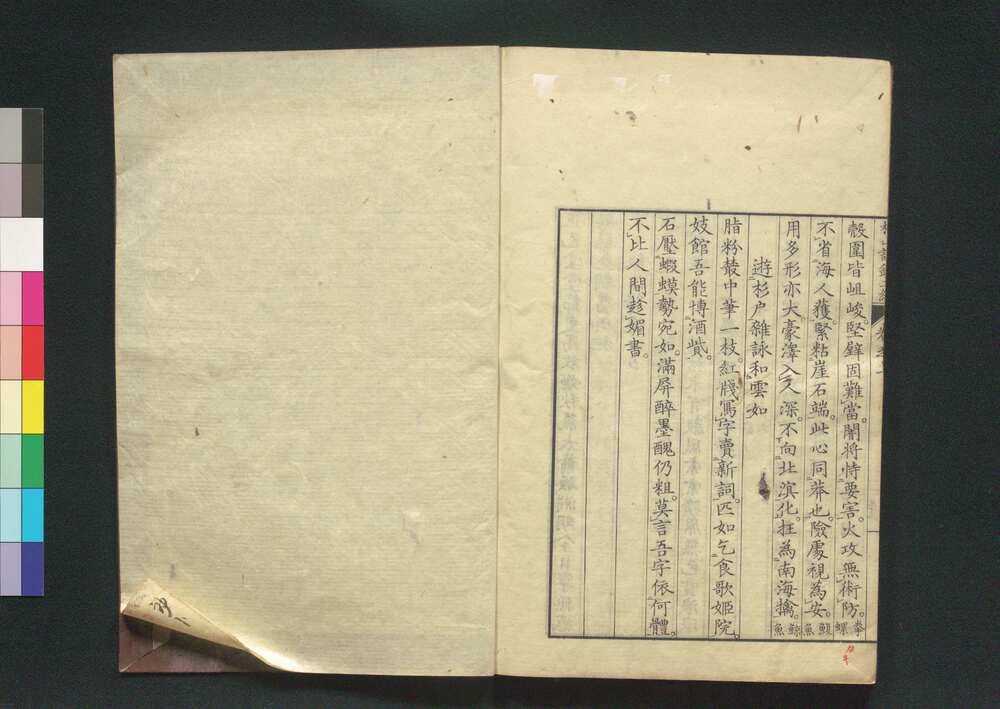 殻圍皆岨峻堅壁固難當。闇將恃要害。火攻無術防。拳螺
不省海人獲緊粘崖石端。此心同莽也。險處視為安。鰒魚
用多形亦大豪澤入人深。不向北溟化。拄為南海擒。鯨魚
遊杉戸雜詠和雲如
脂粉叢中筆一枝。紅牋寫字賣新詞。匹如乞食歌姬院。
妓館吾能博酒貲。
石壓蝦蟆勢宛如。滿屏醉墨醜仍粗。莫言吾字依何體。
不比人間趁媚書。